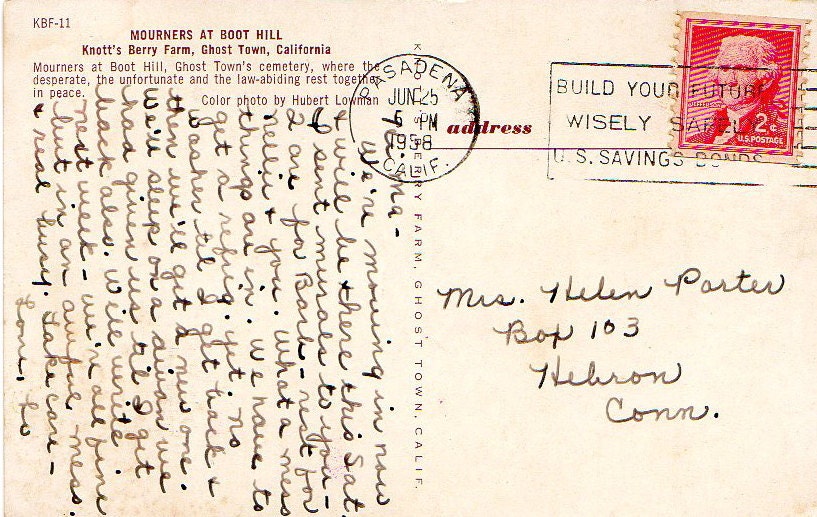 KBF-11
MOURNERS AT BOOT HILL
Knott's Berry Farm, Ghost Town, California
Mourners at Boot Hill, Ghost Town's cemetery, where the
desperate, the unfortunate and the law-abiding rest together
in peace.
Color photo by Hubert Lowman
Ma-
We're moving in now
& will be there this Sat.
I sent murals to you-
2 are for Barb- rest for
& you. What a mess
things are in. We have to
get a refrig. yet, no
washer til I get back &
then we'll get a new one.
We'll sleep on a divan we
had given us til I get
back also. We'll write
next week- we're all fine
but in an awful mess.
& real busy. Take care-
Love, Lu
BERRY FARM, GHOST TOWN, CALIF.
PASADENA
JUN 25
6 PM
1958
CALIF.
BUILD YOUR FUTURE
WISELY SAFELY
U.S. SAVINGS BONDS
JEFFERSON
2¢
U.S. POSTAGE
address
Mrs. Helen Porter
Box 103
Hebron
Conn.